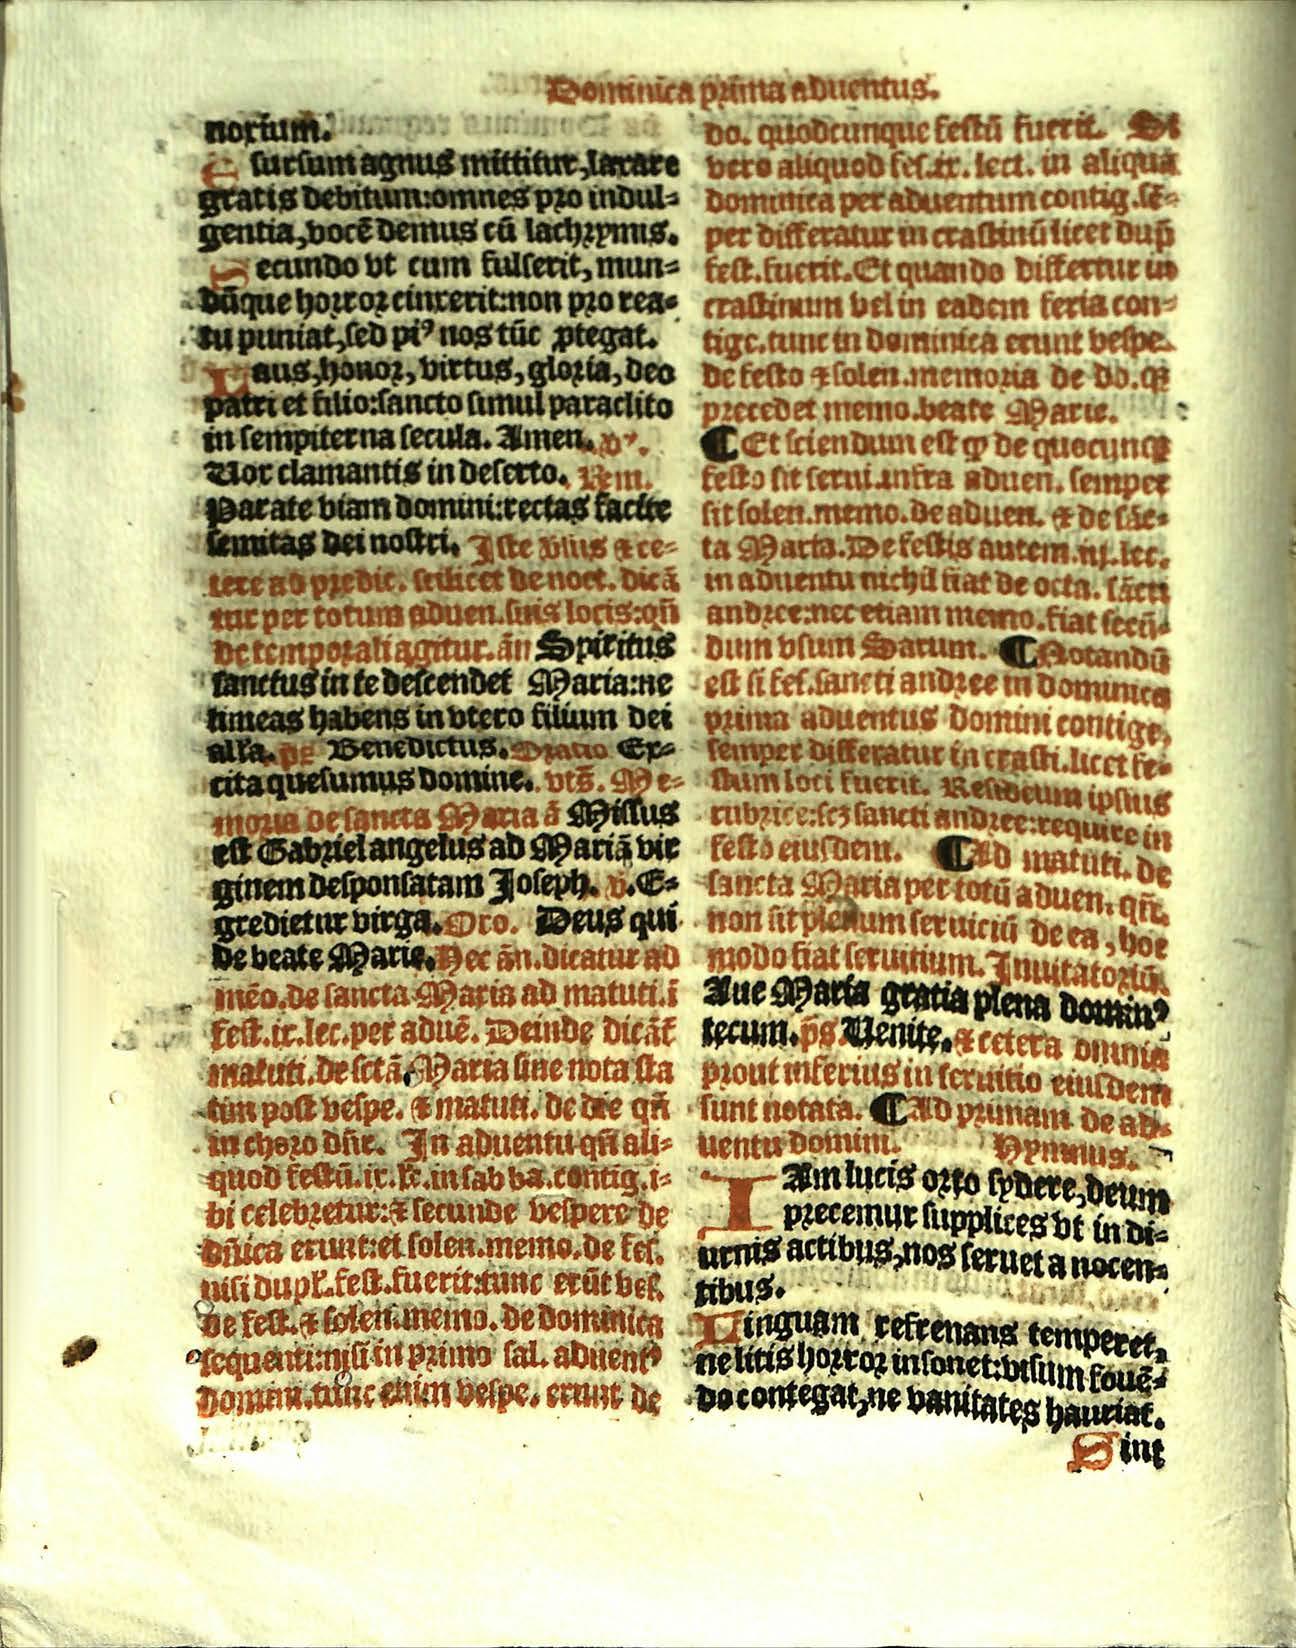 Dominica prima aduentus.
noxium.
E sursum agnus mittitur, laxare
gratis debitum: omnes pro indul-
gentia, vocē demus cū lachrymis.
Secundo vt cum fulserit, mun-
dūque horror cinxerit: non pro rea-
tu puniat, sed piꝰ nos tūc ꝓtegat.
Laus, honor, virtus, gloria, deo
patri et filio: sancto simul paraclito
in sempiterna secula. Amen. v.
Uox clamantis in deserto. Rem.
Parate viam domini: rectas facite
semitas dei nostri. Iste v̄lus ⁊ ce-
tere ad predic. scilicet de noct. dicā
tur per totum aduen. suis locis: qn̄
de temporali agitur. ān Spiritus
sanctus in te descendet Maria: ne
timeas habens in vtero filium dei
all'a. ps Benedictus. Oratio Ex-
cita quesumus domine. vts̄. Me-
moria de sancta Maria ā Missus
est Gabriel angelus ad Mariā vir
ginem desponsatam Ioseph. v. E-
gredietur virga. Oro. Deus qui
de beate Marie. Hec ān. dicatur ad
mēo. de sancta Maria ad matuti. ī
fest. ix. lec. per aduē. Deinde dicāt
matuti. de sctā. Maria sine nota sta
tim post vespe. ⁊ matuti. de die qn̄
in choro dn̄r. In aduentu qn̄ ali-
quod festū. ix. lc̄. in sabba. contig. i-
bi celebretur: ⁊ secunde vespere de
dn̄ica erunt: et solen. memo. de fes.
nisi dupl'. fest. fuerit: tunc erūt ves.
de fest. ⁊ solen. memo. de dominica
sequenti: nisi in primo sal. aduentꝰ
domini. tunc enim vespe. erunt de
do. quodcunque festū fuerit. Si
vero aliquod fes. ix. lect. in aliqua
dominica per aduentum contig. sē-
per differatur in crastinū licet dup̄
fest. fuerit. Et quando differtur in
crastinum vel in eadem feria con-
tige. tunc in dominica erunt vespe.
de festo ⁊ solen. memoria de do. qꝫ
precedet memo. beate Marie.
¶ Et sciendum est ꝙ de quocunqꝫ
festo sit serui. infra aduen. semper
sit solen. memo. de aduen. ⁊ de sāc-
ta Maria. De festis autem. iij. lec.
in aduentu nichil fiat de octa. sācti
andree: nec etiam memo. fiat secū-
dum vsum Sarum. ¶ Notandū
est si fes. sancti andree in dominica
prima aduentus domini contige,
semper differatur in crasti. licet fe-
stum loci fuerit. Residuum ipsius
rubrice: scꝫ sancti andree: require in
festo eiusdem. ¶ Ad matuti. de
sancta Maria per totū aduen. qn̄.
non sit plenum seruiciū de ea, hoc
modo fiat seruitium. Inuitatoriū.
Aue Maria gratia plena dominꝰ
tecum. ps̄. Uenite. ⁊ cetera omnia
prout inferius in seruitio eiusdem
sunt notata. ¶ Ad primam de ad-
uentu domini. Hymnus.
IAm lucis orto sydere, deum
precemur supplices vt in di-
urnis actibus, nos seruet a nocen-
tibus.
Linguam refrenans temperet,
ne litis horror insonet: visum fouē-
do contegat, ne vanitates hauriat.
Sint